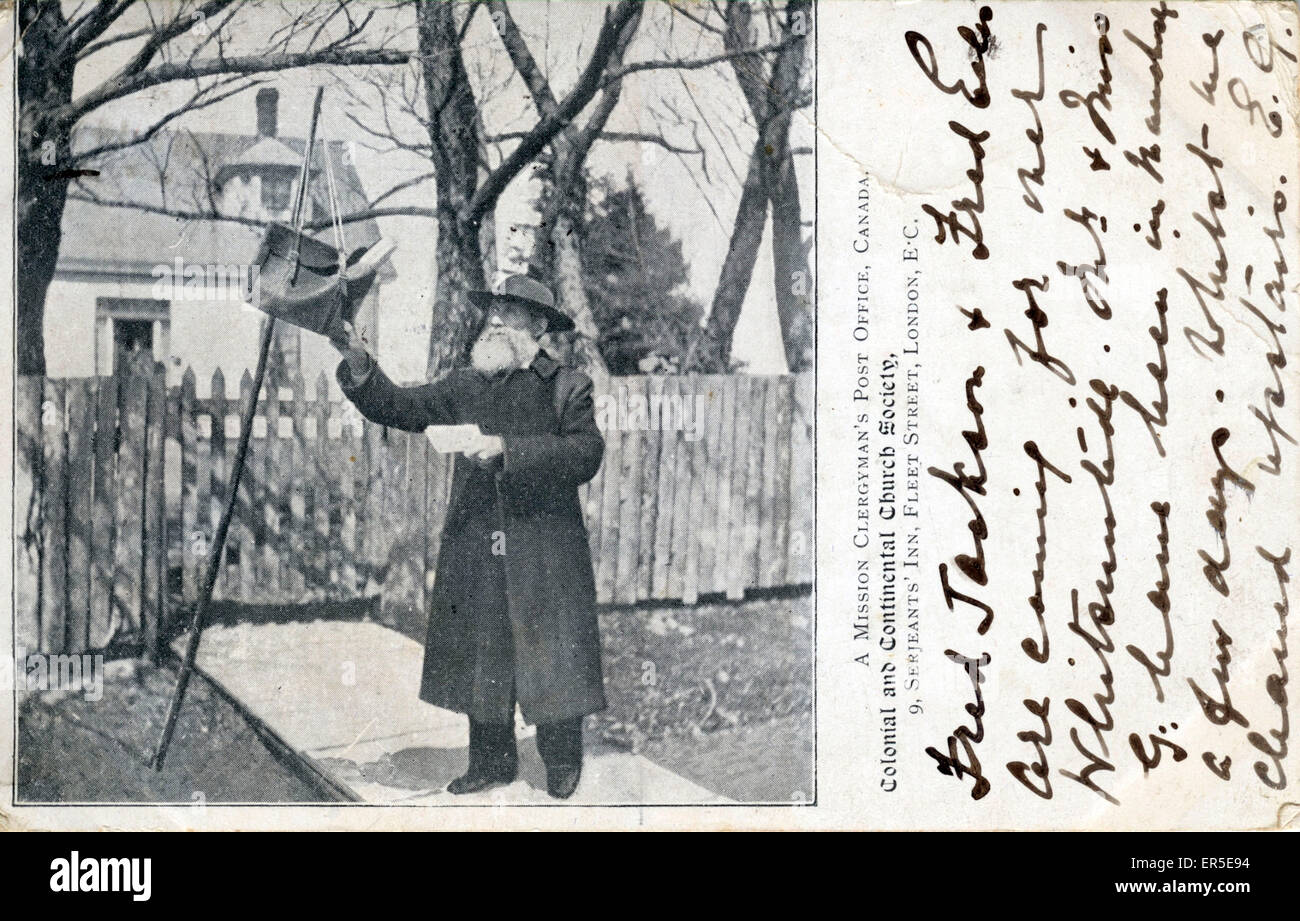 A MISSION CLERGYMAN'S POST OFFICE, CANADA.
Colonial and Continental Church Society,
9, SERJEANTS' INN, FLEET STREET, LONDON, E.C.
Fred Jackson & Fred
are coming for over
Whitsuntide. & Mrs
G. have been in
a few days. Whilst we
cleaned upstairs. E.G.
alamy
Image ID: ER5E94
www.alamy.com